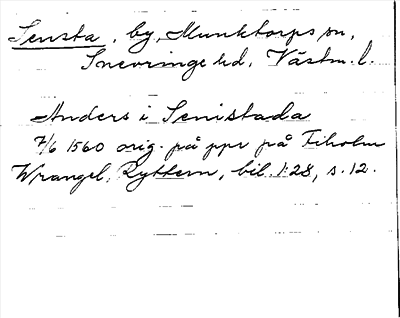 Sensta, by, Munktorps sn,
Snevringe hd, Västm. l.
Anders i Senistada
7/6 1560 orig. på ppr på Tiholm
Wrangel, Ryttern, bil. 1:28, s. 12.